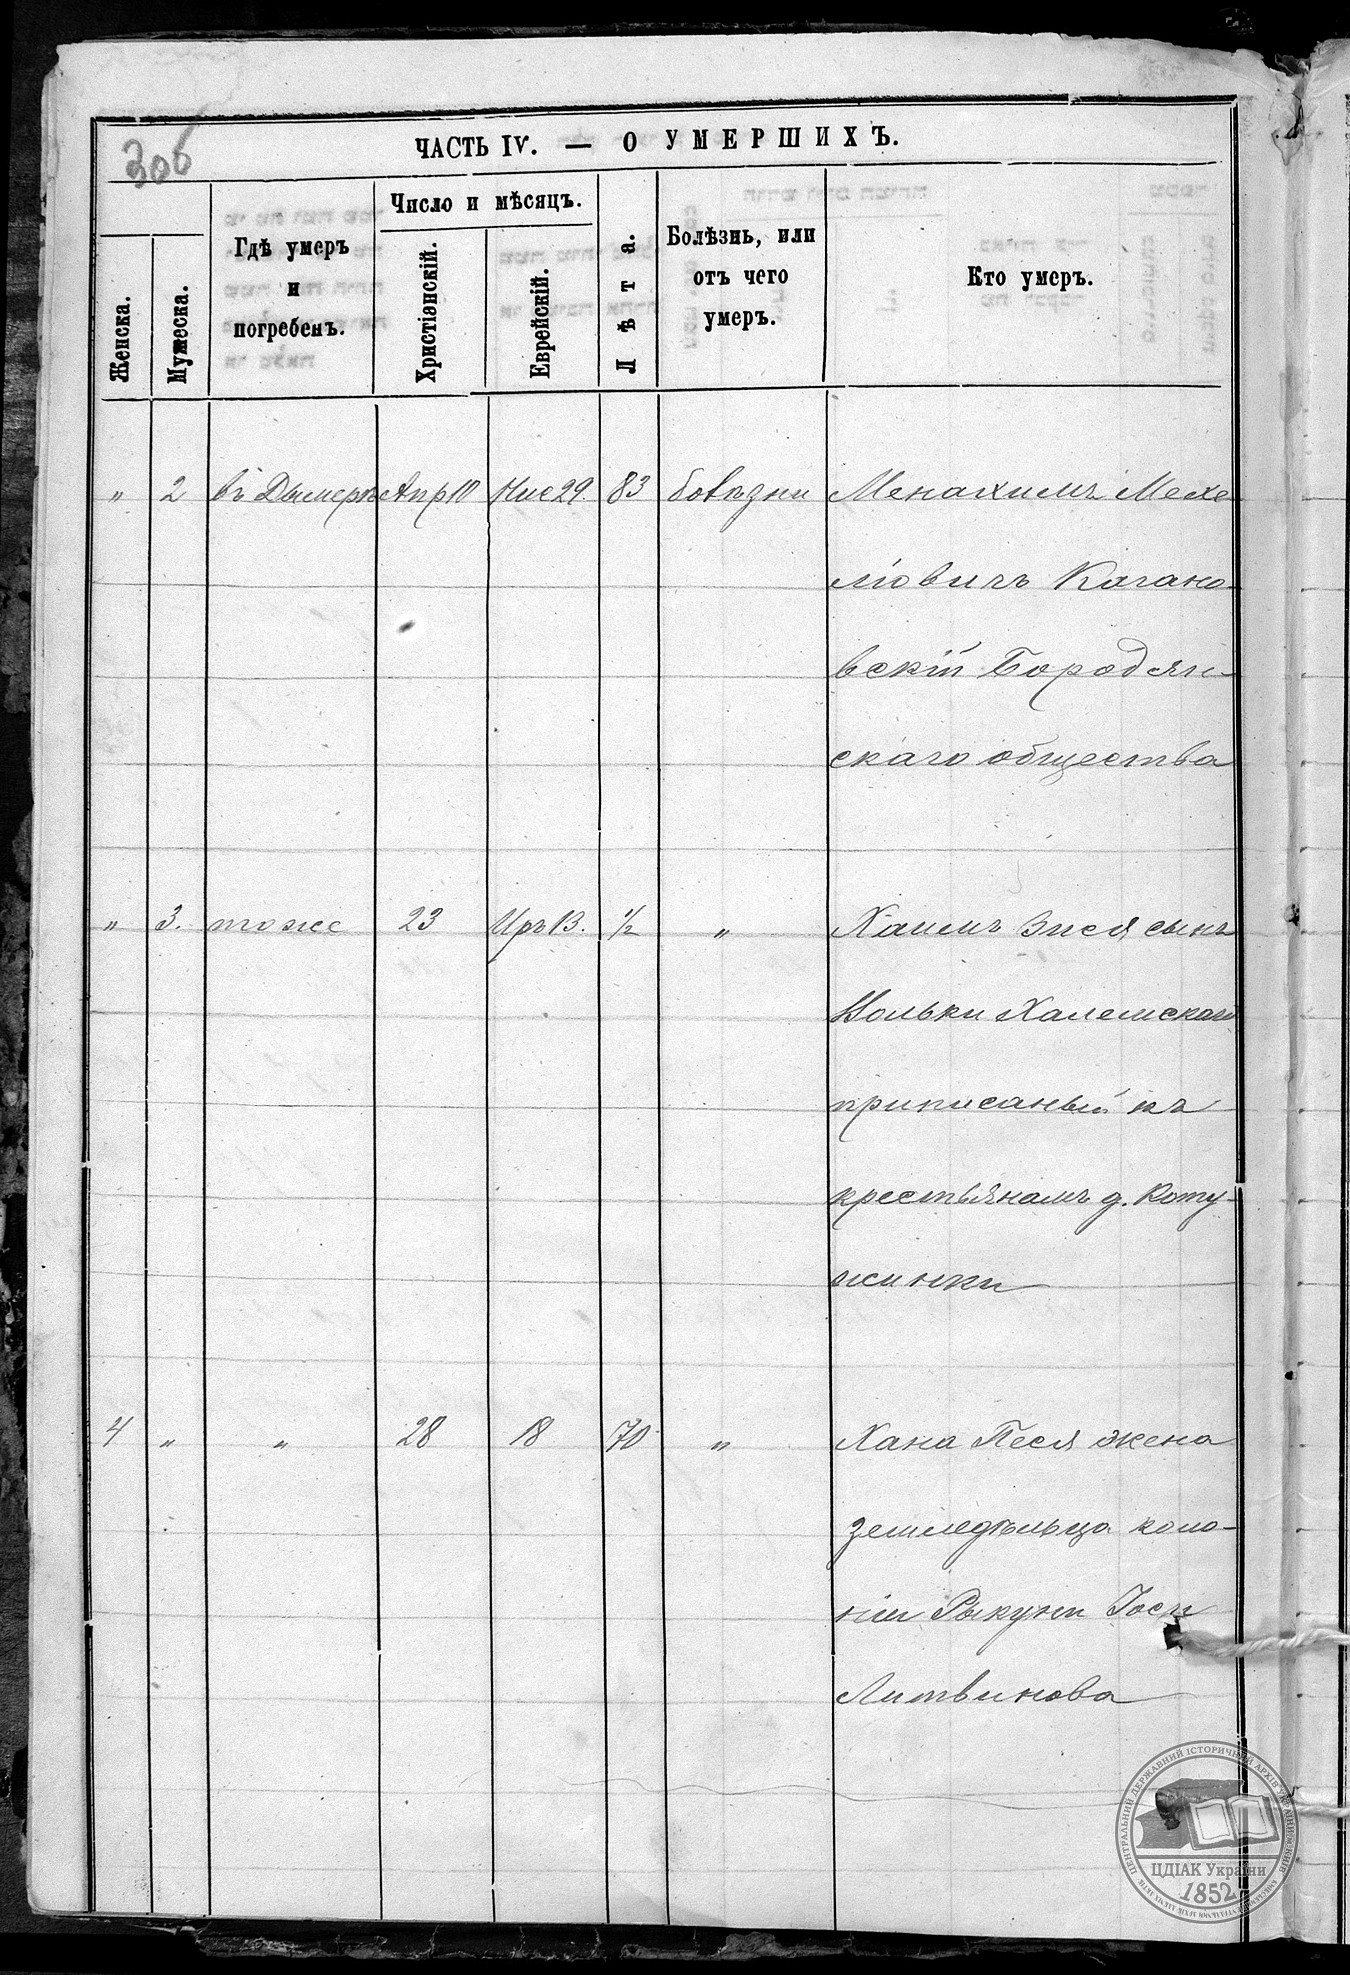 306
ЧАСТЬ IV. — О УМЕРШИХЪ.
Женска.
Мужеска.
Гдѣ умеръ
и
погребенъ.
Число и мѣсяцъ.
Христіэнскій.
Еврейскій.
Лѣта.
Болѣзнь, или
отъ чего
умеръ.
Кто умеръ.
" 2 въ Дымерѣ Апр 10 Нис 29. 83 болѣзни Менахимъ Мехе
лiовичъ Кагано-
вскій Бородян-
скаго общества
" 3. тоже 23 Иръ 13. 1/2 " Хаимъ Зися сынъ
Вольки Халемскаго
приписаный къ
крестьянамъ д. Коту-
жинки
4 " " 28 18 70 " Хана Песя жена
земледѣльца коло-
ніи Рыкуни Іося
Литвинова
ЦЕНТРАЛЬНИЙ ДЕРЖАВНИЙ ІСТОРИЧНИЙ АРХІВ УКРАЇНИ, М.КИЇВ
ЦДІАК України
1852